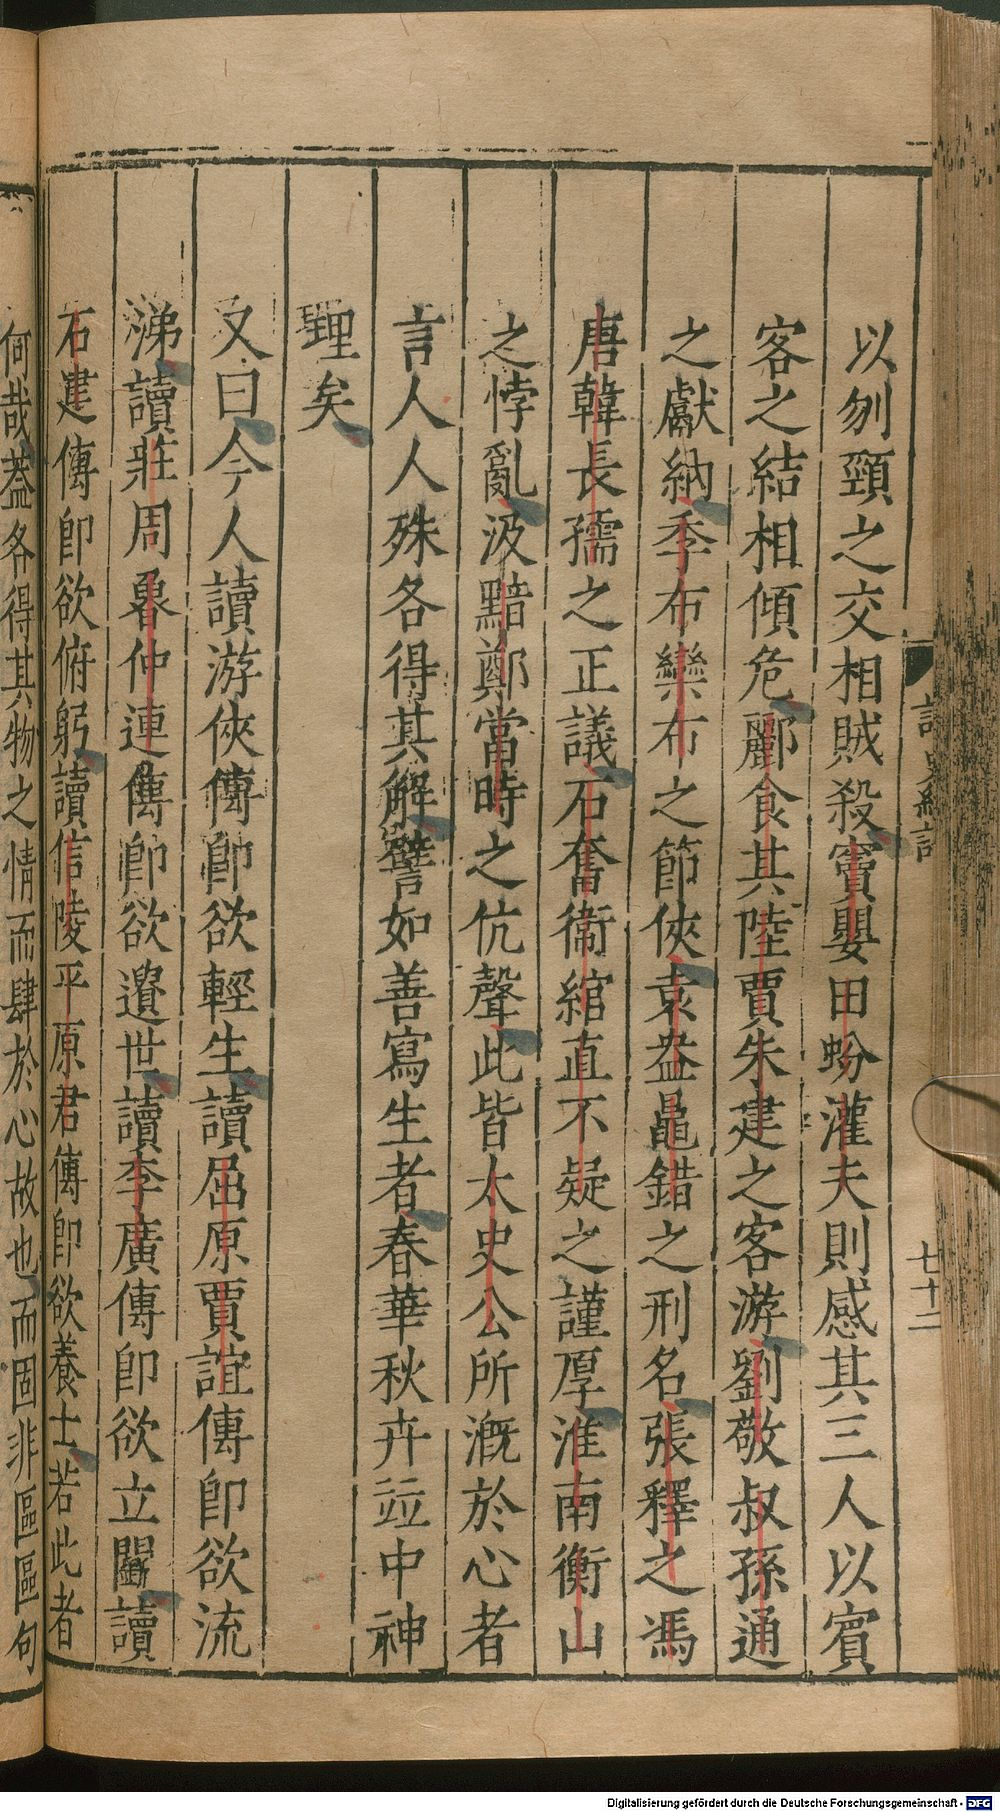 以刎頸之交相賊殺竇嬰田蚡灌夫則感其三人以賓
客之結相傾危酈食其陸賈朱建之客游劉敬叔孫通
之獻納季布欒布之節俠袁盎鼂錯之刑名張釋之馮
唐韓長孺之正議石奮衞綰直不疑之謹厚淮南衡山
之悖亂汲黯鄭當時之伉聲此皆太史公所漑於心者
言人人殊各得其解譬如善寫生者春華秋卉竝中神
理矣
又曰今人讀游俠傳卽欲輕生讀屈原賈誼傳卽欲流
涕讀莊周魯仲連傳卽欲遺世讀李廣傳卽欲立鬭讀
石建傳卽欲俯躬讀信陵平原君傳卽欲養士若此者
何哉蓋各得其物之情而肆於心故也而固非區區句
七十二
Digitalisierung gefördert durch die Deutsche Forschungsgemeinschaft - DFG